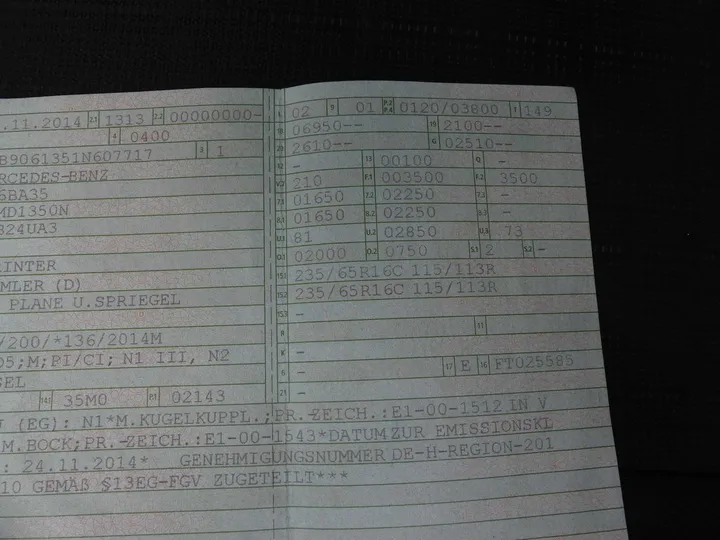 .11.2014 2.1 1313 2.2 00000000-
4 0400
B9061351N607717 3 1
RCEDES-BENZ
6BA35
MD1350N
324UA3
RINTER
MLER (D)
PLANE U.SPRIEGEL
/200/*136/2014M
05;M;PI/CI; N1 III, N2
SEL
14.1 35M0 P.1 02143
L 02 9 01 P.2 P.4 0120/03800 T 149
18 06950-- 19 2100--
20 2610-- G 02510--
12 - 13 00100 Q -
V.7 210 F.1 003500 F.2 3500
7.1 01650 7.2 02250 7.3 -
8.1 01650 8.2 02250 8.3 -
U.1 81 U.2 02850 U.3 73
O.1 02000 O.2 0750 S.1 2 S.2 -
15.1 235/65R16C 115/113R
15.2 235/65R16C 115/113R
15.3 -
R - 11
K -
6 - 17 E 16 FT025585
21 -
(EG): N1*M.KUGELKUPPL.;PR.-ZEICH.:E1-00-1512 IN V
M.BOCK;PR.-ZEICH.:E1-00-1543*DATUM ZUR EMISSIONSKL
: 24.11.2014* GENEHMIGUNGSNUMMER DE-H-REGION-201
10 GEMÄß §13EG-FGV ZUGETEILT***